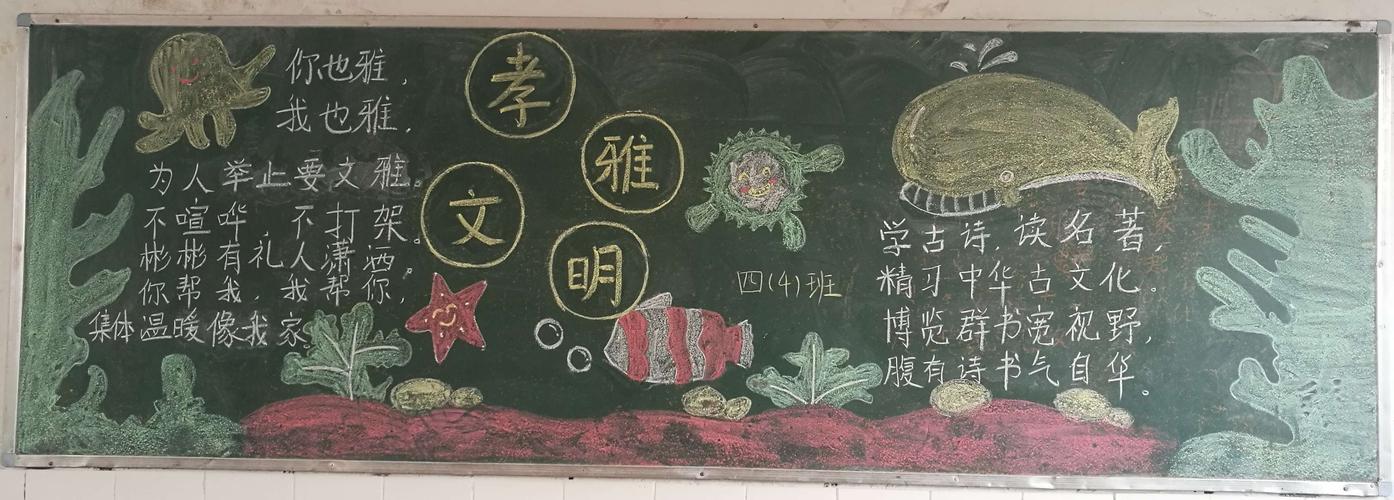 你也雅，
我也雅，
为人举止要文雅。
不喧哗，不打架。
彬彬有礼人潇洒。
你帮我，我帮你，
集体温暖像我家
孝
雅
文
明
四(4)班
学古诗，读名著，
精习中华古文化。
博览群书宽视野，
腹有诗书气自华。